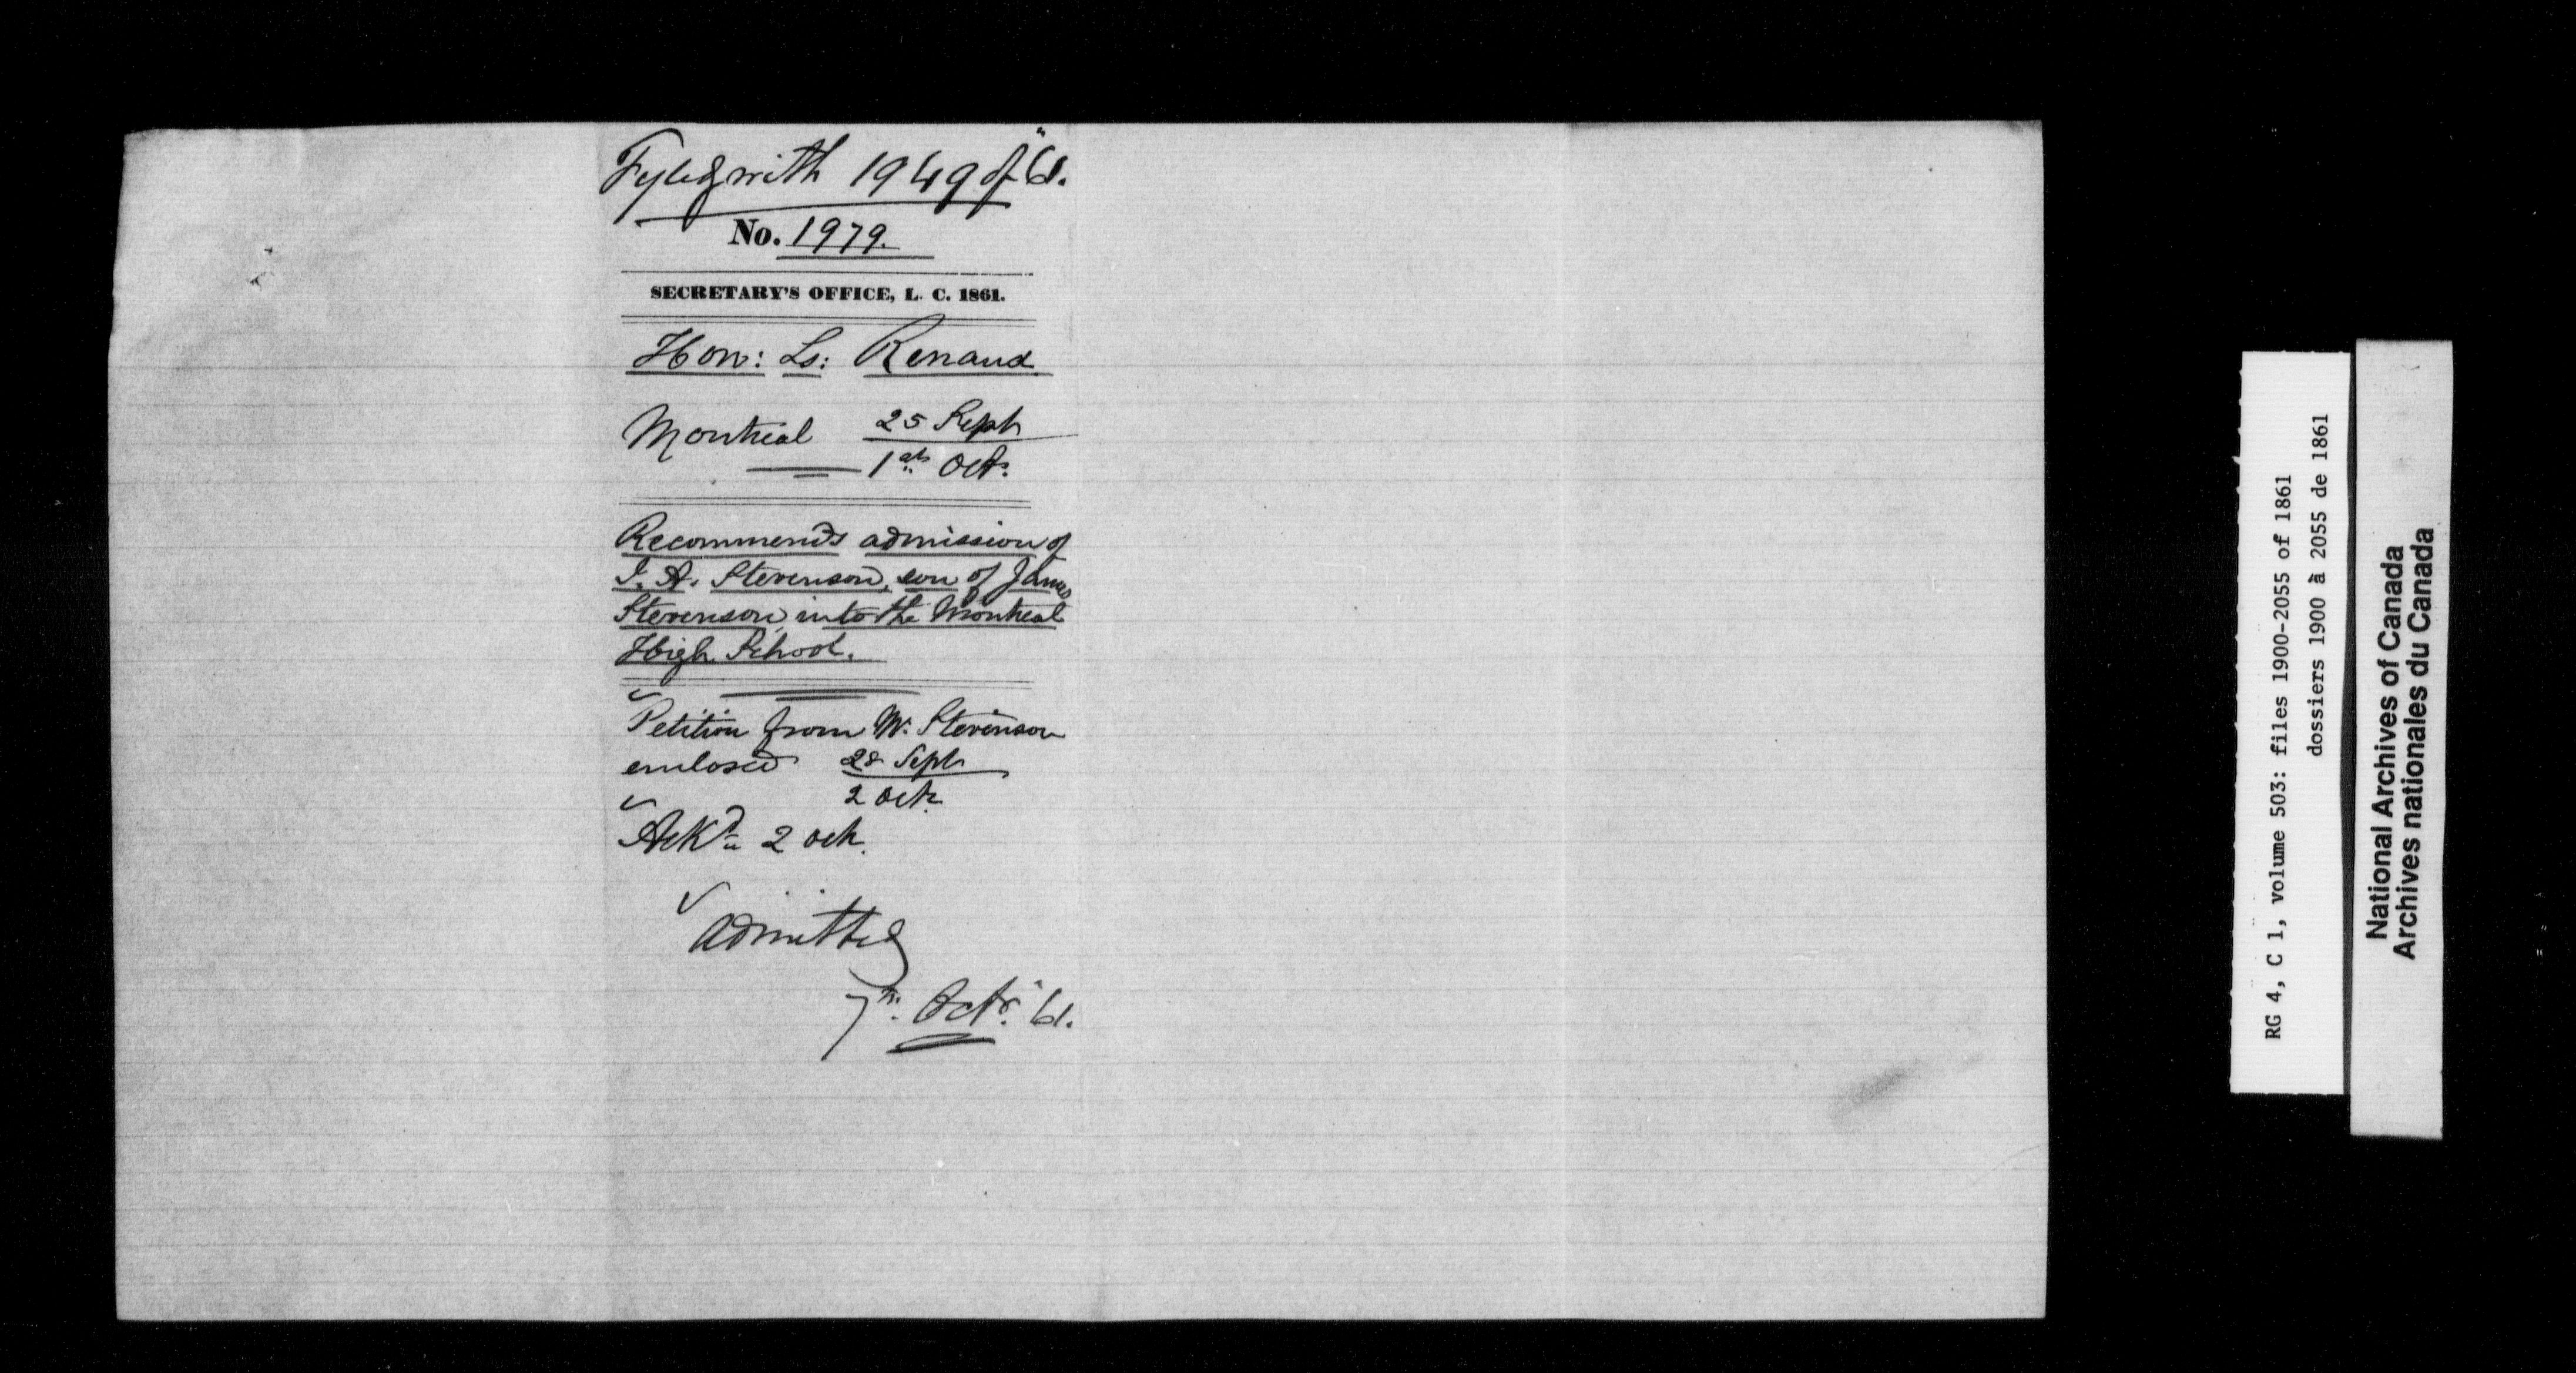 Fyled with 1949 of "61.
No. 1979.
SECRETARY'S OFFICE, L. C. 1861.
Hon: Ls: Renaud
Montreal 25 Sept
1st Oct.
Recommends admission of
J. A. Stevenson, son of James
Stevenson, into the Montreal
High School.
Petition from Mr. Stevenson
enclosed 28 Sept
2 Oct.
Ackd 2 Oct.
Admitted
7th. Octr. "61.
RG 4, C 1, volume 503: files 1900-2055 of 1861
dossiers 1900 à 2055 de 1861
National Archives of Canada
Archives nationales du Canada